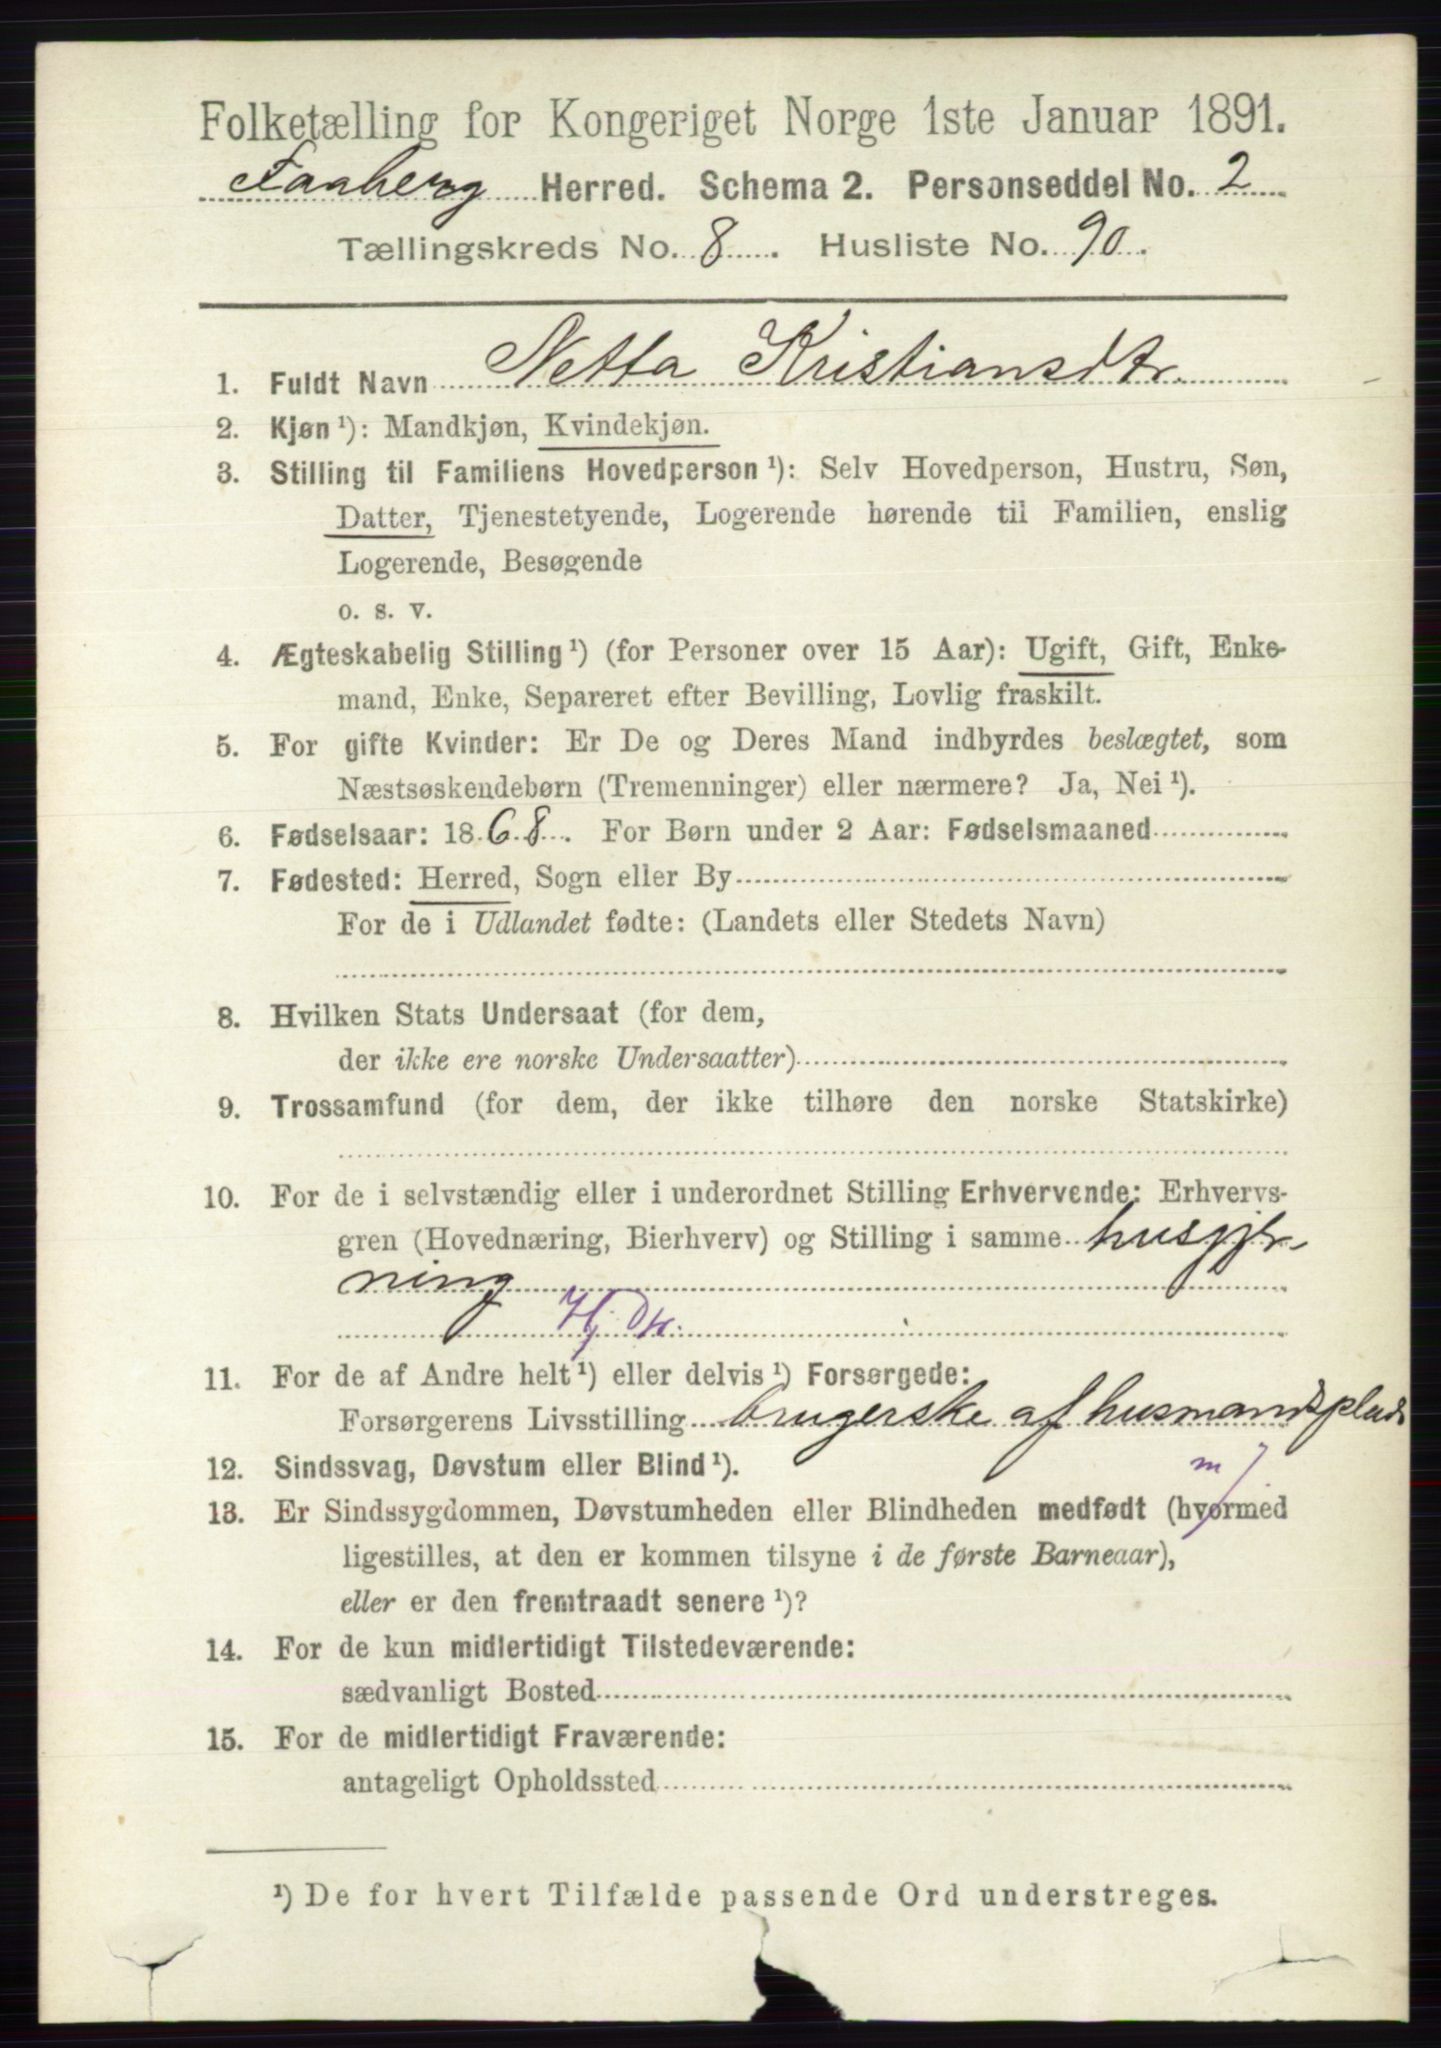 Folketælling for Kongeriget Norge 1ste Januar 1891.
Faaberg Herred. Schema 2. Personseddel No. 2
Tællingskreds No. 8. Husliste No. 90.
1. Fuldt Navn Netta Kristiansdtr.
2. Kjøn ¹): Mandkjøn, Kvindekjøn.
3. Stilling til Familiens Hovedperson ¹): Selv Hovedperson, Hustru, Søn,
Datter, Tjenestetyende, Logerende hørende til Familien, enslig
Logerende, Besøgende
o. s. v.
4. Ægteskabelig Stilling ¹) (for Personer over 15 Aar): Ugift, Gift, Enke-
mand, Enke, Separeret efter Bevilling, Lovlig fraskilt.
5. For gifte Kvinder: Er De og Deres Mand indbyrdes beslægtet, som
Næstsøskendebørn (Tremenninger) eller nærmere? Ja, Nei ¹).
6. Fødselsaar: 1868. For Børn under 2 Aar: Fødselsmaaned
7. Fødested: Herred, Sogn eller By
For de i Udlandet fødte: (Landets eller Stedets Navn)
8. Hvilken Stats Undersaat (for dem,
der ikke ere norske Undersaatter)
9. Trossamfund (for dem, der ikke tilhøre den norske Statskirke)
10. For de i selvstændig eller i underordnet Stilling Erhvervende: Erhvervs-
gren (Hovednæring, Bierhverv) og Stilling i samme husgjer-
ning
Hj. Dtr.
11. For de af Andre helt ¹) eller delvis ¹) Forsørgede:
Forsørgerens Livsstilling brugerske af husmandsplads
m
12. Sindssvag, Døvstum eller Blind ¹).
13. Er Sindssygdommen, Døvstumheden eller Blindheden medfødt (hvormed
ligestilles, at den er kommen tilsyne i de første Barneaar),
eller er den fremtraadt senere ¹)?
14. For de kun midlertidigt Tilstedeværende:
sædvanligt Bosted
15. For de midlertidigt Fraværende:
antageligt Opholdssted
¹) De for hvert Tilfælde passende Ord understreges.